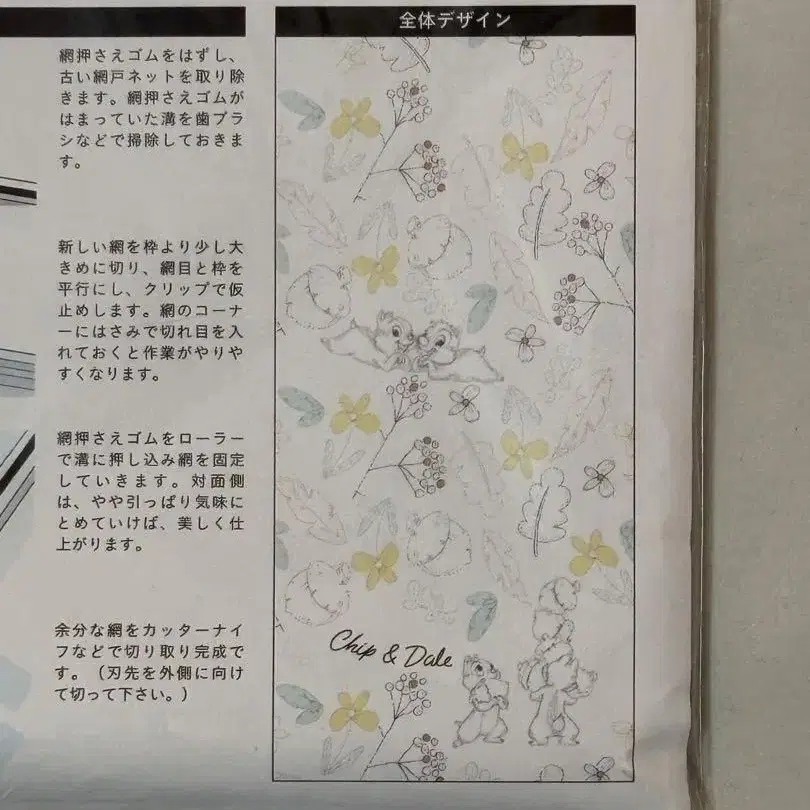 網押さえゴムをはずし、
古い網戸ネットを取り除
きます。網押さえゴムが
はまっていた溝を歯ブラ
シなどで掃除しておきま
す。
新しい網を枠より少し大
きめに切り、網目と枠を
平行にし、クリップで仮
止めします。網のコーナ
ーにはさみで切れ目を入
れておくと作業がやりや
すくなります。
網押さえゴムをローラー
で溝に押し込み網を固定
していきます。対面側
は、やや引っぱり気味に
とめていけば、美しく仕
上がります。
余分な網をカッターナイ
フなどで切り取り完成で
す。（刃先を外側に向け
て切って下さい。）
全体デザイン
Chip & Dale